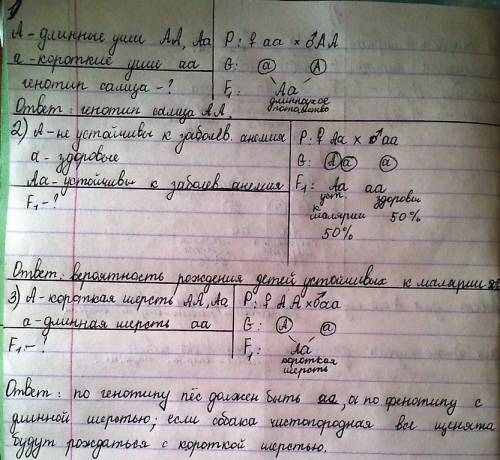 1
А - длинные уши АА, Аа
а - короткие уши аа
генотип самца - ?
P: ♀ аа × ♂АА
G: а А
F₁: Аа
длинноухое
потомство
Ответ: генотип самца АА.
2) А - не устойчивы к заболев. анемия
а - здоровые
Аа - устойчивы к заболев анемия
F₁ - ?
P: ♀ Аа × ♂ аа
G: А а а
F₁: Аа аа
уст. здоровы
к
малярии 50%
50%
Ответ: вероятность рождения детей устойчивых к малярии
3) А - короткая шерсть АА, Аа
а - длинная шерсть аа
F₁ - ?
P: ♀ АА × ♂аа
G: А а
F₁: Аа
короткая
шерсть
Ответ: по генотипу пёс должен быть аа, а по фенотипу с
длинной шерстью; если собака чистопородная все щенята
будут рождаться с короткой шерстью.